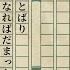 とばり
なればだまっ